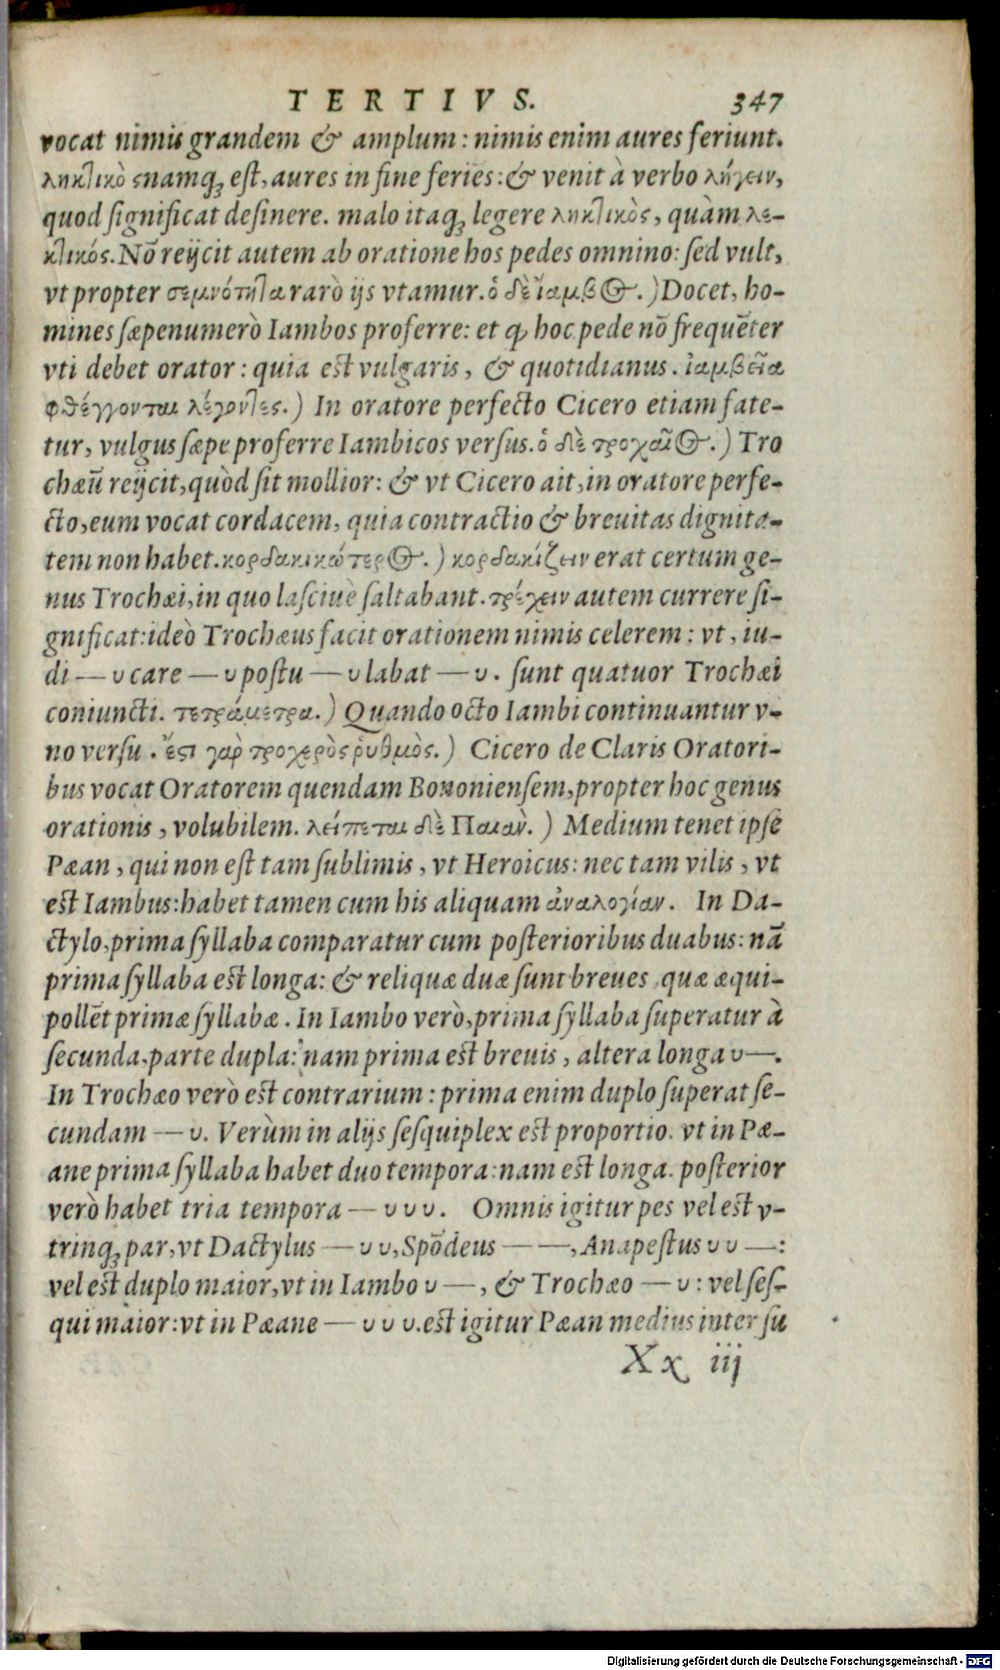 TERTIVS. 347
vocat nimis grandem & amplum: nimis enim aures feriunt.
ληκτικὸ ςnamq́; est, aures in fine feries: & venit à verbo λήγειν,
quod significat desinere. malo itaq́; legere ληκτικὸς, quàm λε-
κτικός. Nō reijcit autem ab oratione hos pedes omnino: sed vult,
vt propter σεμνότητα rarò ijs vtamur. ὁ δὲ ἴαμβος.) Docet, ho-
mines sæpenumerò Iambos proferre: et ꝙ hoc pede nō frequēter
vti debet orator: quia est vulgaris, & quotidianus. ἰαμβεῖα
φθέγγονται λέγοντες.) In oratore perfecto Cicero etiam fate-
tur, vulgus sæpe proferre Iambicos versus. ὁ δὲ τροχαῖος.) Tro
chæū reijcit, quòd sit mollior: & vt Cicero ait, in oratore perfe-
cto, eum vocat cordacem, quia contractio & breuitas dignita-
tem non habet. κορδακικώτερος.) κορδακίζειν erat certum ge-
nus Trochæi, in quo lasciuè saltabant. τρέχειν autem currere si-
gnificat: ideò Trochæus facit orationem nimis celerem: vt, iu-
di — υ care — υ postu — υ labat — υ. sunt quatuor Trochæi
coniuncti. τετράμετρα.) Quando octo Iambi continuantur v-
no versu. ἔστι γὰρ τροχερὸς ῥυθμὸς.) Cicero de Claris Oratori-
bus vocat Oratorem quendam Bononiensem, propter hoc genus
orationis, volubilem. λείπεται δὲ Παιὰν.) Medium tenet ipse
Pæan, qui non est tam sublimis, vt Heroicus: nec tam vilis, vt
est Iambus: habet tamen cum his aliquam ἀναλογίαν. In Da-
ctylo, prima syllaba comparatur cum posterioribus duabus: nā
prima syllaba est longa: & reliquæ duæ sunt breues, quæ æqui-
pollēt primæ syllabæ. In Iambo verò, prima syllaba superatur à
secunda, parte dupla: nam prima est breuis, altera longa υ —.
In Trochæo verò est contrarium: prima enim duplo superat se-
cundam — υ. Verùm in alijs sesquiplex est proportio. vt in Pæ-
ane prima syllaba habet duo tempora: nam est longa. posterior
verò habet tria tempora — υ υ υ. Omnis igitur pes vel est v-
trinq́; par, vt Dactylus — υ υ, Spōdeus — —, Anapestus υ υ —:
vel est duplo maior, vt in Iambo υ —, & Trochæo — υ: vel ses-
qui maior: vt in Pæane — υ υ υ. est igitur Pæan medius inter su
Xx iij
Digitalisierung gefördert durch die Deutsche Forschungsgemeinschaft - DFG